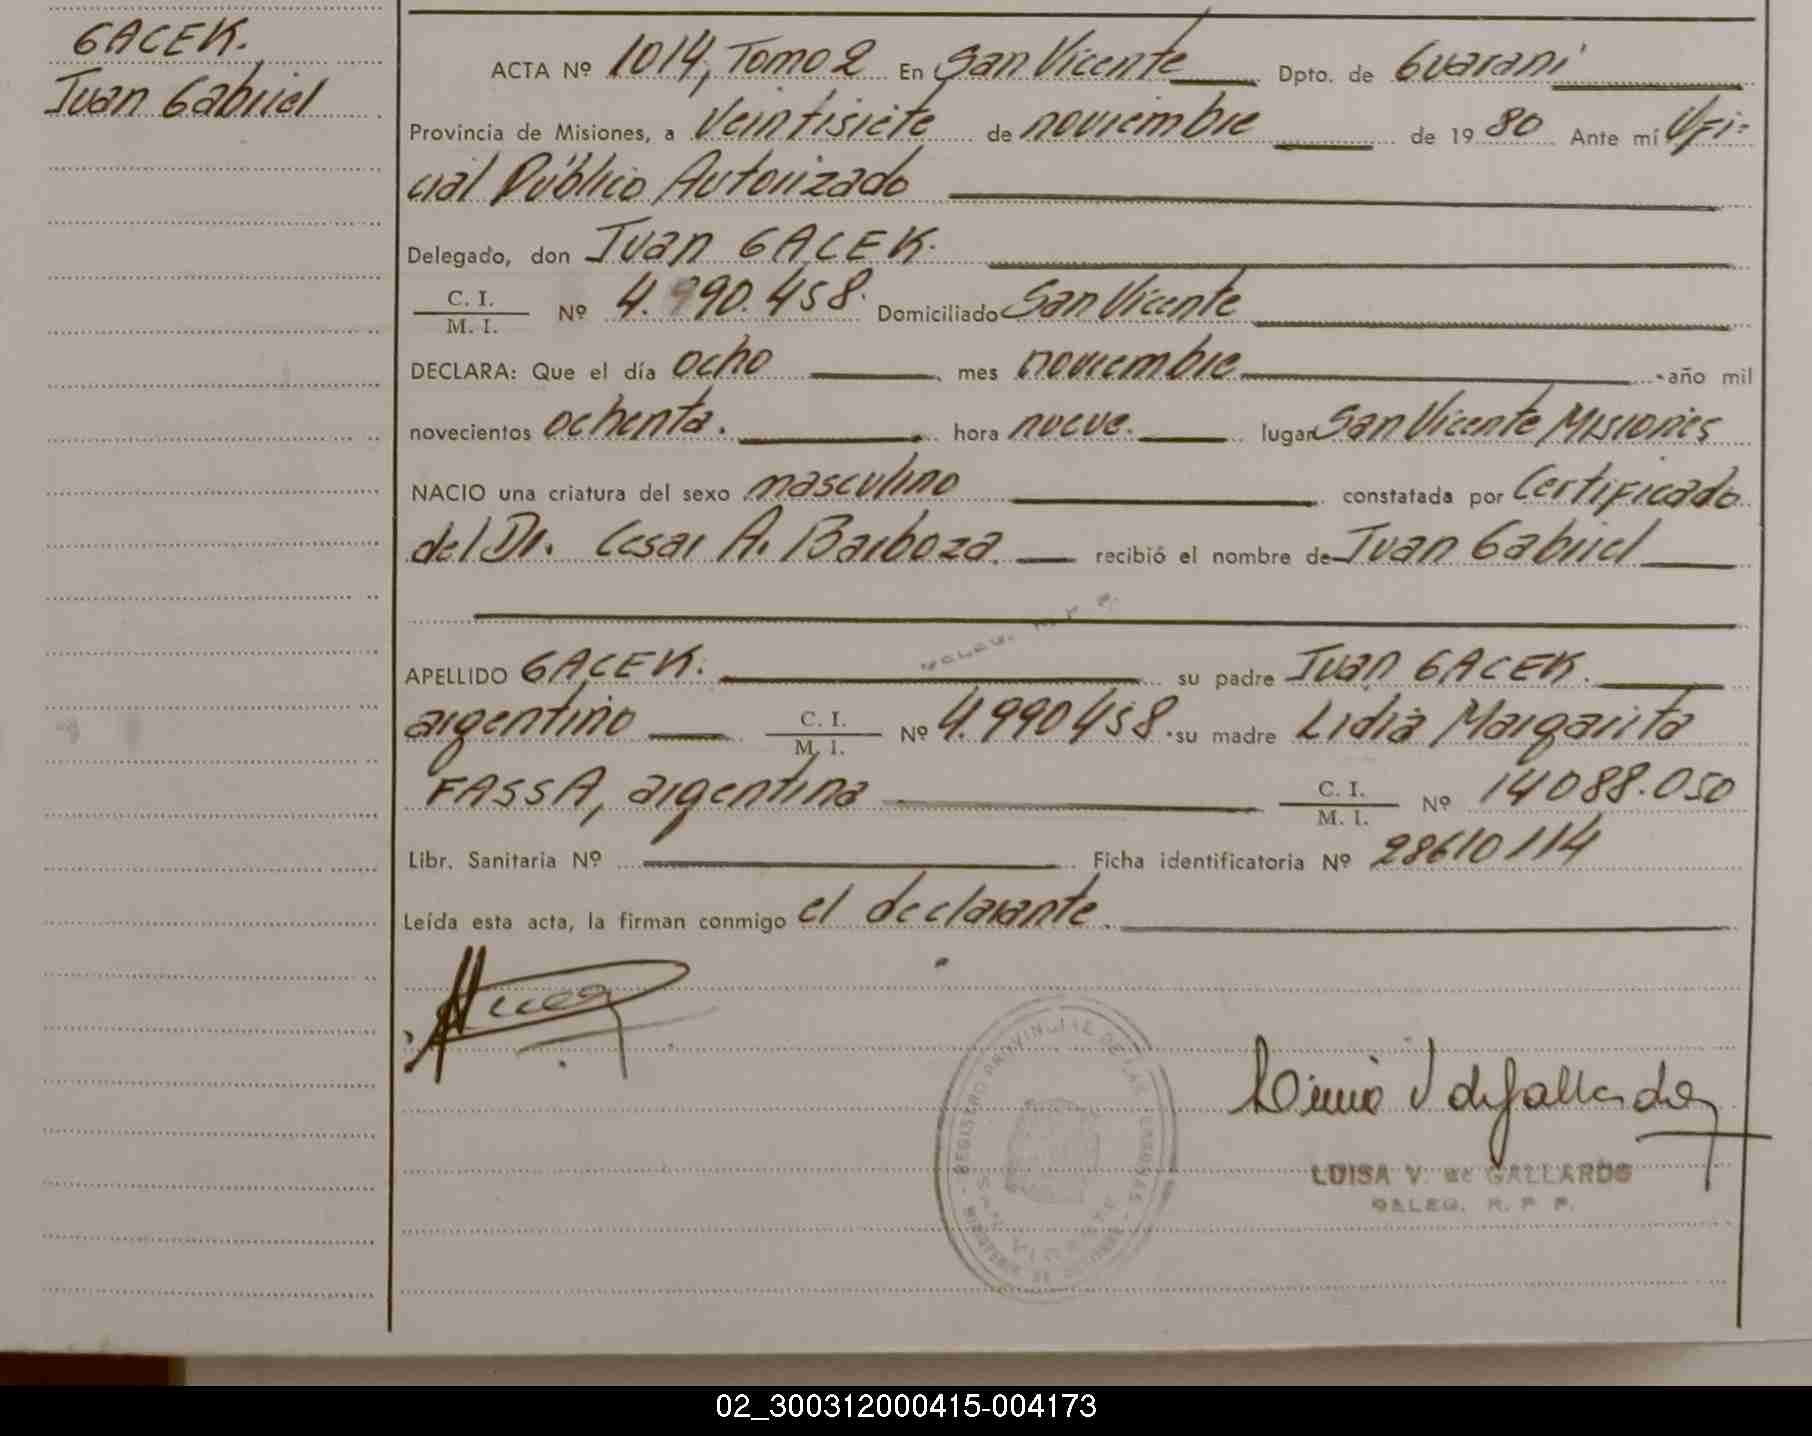 GACEK.
Juan Gabriel
ACTA Nº 1014, Tomo 2 En San Vicente Dpto. de Guaraní
Provincia de Misiones, a veintisiete de noviembre de 1980 Ante mí Ofi-
cial Público Autorizado
Delegado, don Juan GACEK.
C. I.
M. I. Nº 4.990.458. Domiciliado San Vicente
DECLARA: Que el día ocho mes noviembre año mil
novecientos ochenta. hora nueve. lugar San Vicente Misiones
NACIO una criatura del sexo masculino constatada por Certificado
del Dr. Cesar A. Barboza. recibió el nombre de Juan Gabriel
DELEG. R. P. P.
APELLIDO GACEK. su padre Juan GACEK.
argentino C. I.
M. I. Nº 4.990458. su madre Lidia Margarita
FASSA, argentina C. I.
M. I. Nº 14088.050
Libr. Sanitaria Nº Ficha identificatoria Nº 28610114
Leída esta acta, la firman conmigo el declarante.
REGISTRO PROVINCIAL DE LAS PERSONAS
SAN VICENTE
LUISA V. de GALLARDO
DELEG. R. P. P.
02_300312000415-004173